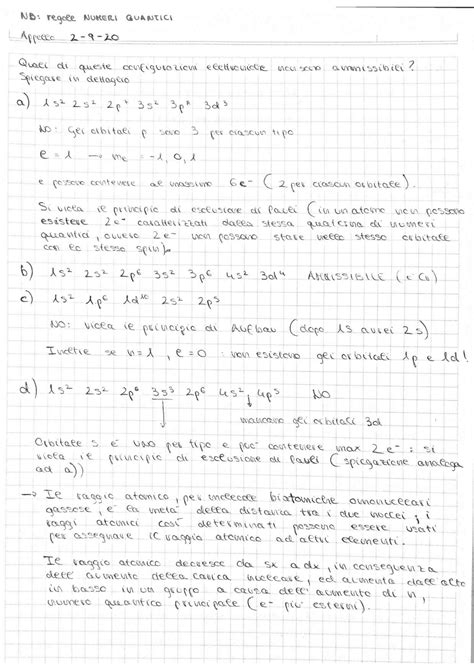 NB: regole NUMERI QUANTICI
Appello 2-9-20
Quali di queste configurazioni elettroniche non sono ammissibili?
Spiegare in dettaglio
a) 1s² 2s² 2p⁶ 3s² 3p⁸ 3d⁵
NO: Gli orbitali p sono 3 per ciascun tipo
l = 1 → mₗ = -1, 0, 1
e possono contenere al massimo 6e⁻ (2 per ciascun orbitale).
Si viola il principio di esclusione di Pauli (in un atomo non possono
esistere 2e⁻ caratterizzati dalla stessa quaterna di numeri
quantici, ovvero 2e⁻ non possono stare nello stesso orbitale
con lo stesso spin).
b) 1s² 2s² 2p⁶ 3s² 3p⁶ 4s² 3d⁴ AMMISSIBILE
c) 1s² 1p⁶ 1d¹⁰ 2s² 2p⁵
NO: viola il principio di Aufbau (dopo 1s avrei 2s)
Inoltre se n=1, l=0: non esistono gli orbitali 1p e 1d!
d) 1s² 2s² 2p⁶ 3s³ 3p⁶ 4s² 4p⁵ NO
mancano gli orbitali 3d
Orbitale s è UNO per tipo e può contenere max 2e⁻: si
viola il principio di esclusione di Pauli (spiegazione analoga
ad a))
→ Il raggio atomico, per molecole biatomiche omonucleari
gassose, è la metà della distanza tra i due nuclei; i
raggi atomici così determinati possono essere usati
per assegnare il raggio atomico ad altri elementi.
Il raggio atomico decresce da sx a dx, in conseguenza
dell'aumento della carica nucleare, ed aumenta dall'alto
in basso in un gruppo a causa dell'aumento di n,
numero quantico principale (e⁻ più esterni).